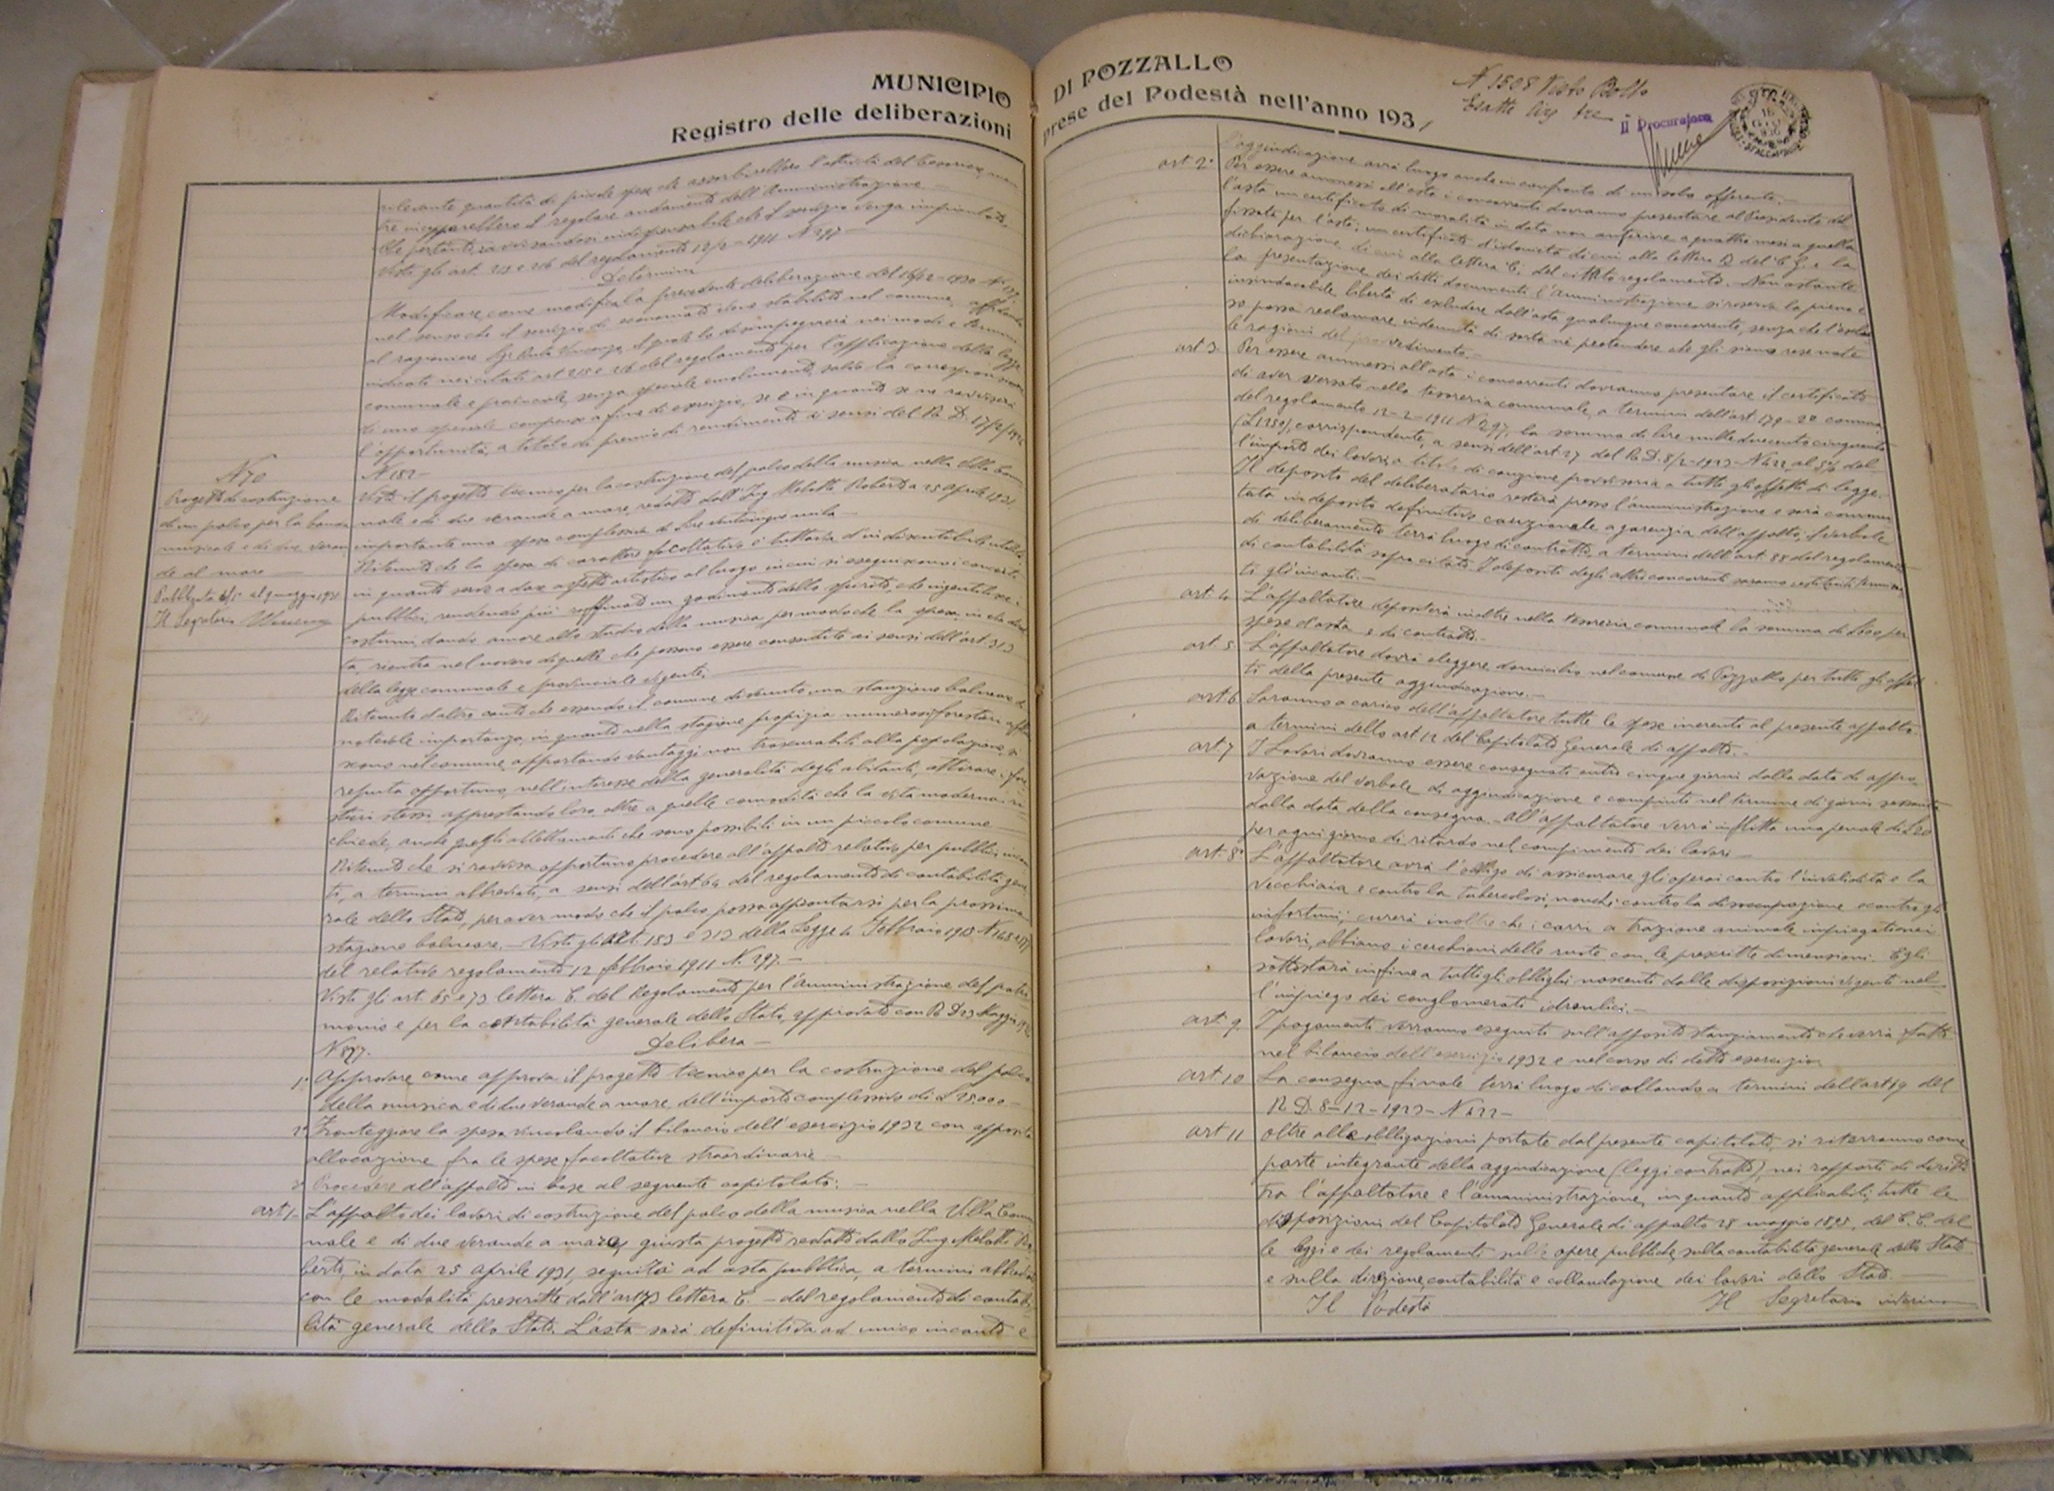 MUNICIPIO
Registro delle deliberazioni
rilevante quantità di piccole spese che assorbirebbero l'attività del tesoriere, men
tre incepperebbero il regolare andamento dell'Amministrazione.
Che pertanto indispensabile che il servizio venga impiantato.
Visti gli art. 215 e 216 del regolamento 12/2-1911 N. 297
Determina
Modificare come modifica la precedente deliberazione del
nel senso che il servizio di economato viene stabilito nel comune affidando
al ragioniere Sig. Vincenzo, il quale lo disimpegnerà nei modi e termini
indicati nei citati art. 215 e 216 del regolamento per l'applicazione della legge
comunale e provinciale, senza speciale emolumento, salvo la corresponsione
di uno speciale compenso a fine di esercizio, se e in quanto se ne ravviserà
l'opportunità, a titolo di premio di rendimento ai sensi del R. D.
N. 182-
N 70
Progetto di costruzione
di un palco per la banda
musicale e di due veran
de al mare
Il Segretario
Visto il progetto tecnico per la costruzione del palco della musica nella Villa Comu
nale e di due verande a mare, redatto dall'Ing. Melotti Roberto a 25 Aprile 1931,
importante una spesa complessiva di Lire venticinque mila-
Ritenuto che la spesa di carattere facoltativo è tuttavia d'indiscutibile utilità
in quanto serve a dare aspetto artistico al luogo in cui si eseguiscono i concerti
pubblici, rendendo più raffinato un godimento dello spirito, che ingentilisce i
costumi, dando amore allo studio della musica, per modo che la spesa, in ché
ta, rientra nel novero di quelle che possono essere consentite ai sensi dell'art. 313
della legge comunale e provinciale vigente;
Ritenuto d'altro canto che essendo il comune divenuto una stazione balneare di
notevole importanza, in quanto nella stagione propizia numerosi forestieri
scono nel comune, apportando vantaggi non trascurabili alla popolazione, si
reputa opportuno, nell'interesse della generalità degli abitanti, attirare i fore
stieri stessi, apprestando loro, oltre a quelle comodità che la vita moderna ri
chiede, anche quegli allettamenti che sono possibili in un piccolo comune
Ritenuto che si ravvisa opportuno procedere all'appalto relativo per pubblici incan
ti, a termini abbreviati, a sensi dell'art. 64 del regolamento di contabilità gene
rale dello Stato, per aver modo che il palco possa approntarsi per la prossima
stagione balneare. - Visti gli art. 183 e 313 della Legge 4 Febbraio 1915 N. 148 e
del relativo regolamento 12 febbraio 1911 N. 297.-
Visti gli art. 65 e 73 lettera C. del Regolamento per l'Amministrazione del patri
monio e per la contabilità generale dello Stato, approvato con R. D. 23 Maggio
N 827.
Delibera -
1° Approvare come approva il progetto tecnico per la costruzione del palco
della musica e di due verande a mare, dell'importo complessivo di £ 25.000-
2° Fronteggiare la spesa vincolando il bilancio dell'esercizio 1932 con apposita
allocazione fra le spese facoltative straordinarie-
3° Procedere all'appalto in base al seguente capitolato: -
art. 1- L'appalto dei lavori di costruzione del palco della musica nella Villa Comu
nale e di due verande a mare, giusta progetto redatto dallo Ing. Melotti Ro
berto, in data 25 Aprile 1931, seguirà ad asta pubblica, a termini abbreviati
con le modalità prescritte dall'art. 73 lettera C. - del regolamento di contabi
lità generale dello Stato. L'asta sarà definitiva ad unico incanto e
DI POZZALLO
prese del Podestà nell'anno 1931
N. 1508 Visto Bollo
Esatte
Il Procuratore
l'aggiudicazione avrà luogo anche in confronto di un solo offerente.-
art. 2° Per essere ammessi all'asta i concorrenti dovranno presentare al Presidente del
l'asta un certificato di moralità in data non anteriore a quattro mesi a quella
fissata per l'asta; un certificato d'idoneità di cui alla lettera B del C. G. e la
dichiarazione di cui alla lettera C. del citato regolamento. Non ostante
la presentazione dei detti documenti l'Amministrazione si riserva la piena e
insindacabile libertà di escludere dall'asta qualunque concorrente, senza che l'esclu
so possa reclamare indennità di sorta né pretendere che gli siano rese note
le ragioni del provvedimento.-
art. 3 Per essere ammessi all'asta i concorrenti dovranno presentare il certificato
di aver versato nella tesoreria comunale, a termini dell'art. 179 - 2° comma
del regolamento 12-2-1911 N 297, la somma di lire mille duecento cinquanta
(L. 1250), corrispondente, a sensi dell'art. 27 del R. D. 8/2-1923-N 422 al 5% del
l'importo dei lavori, a titolo di cauzione provvisoria a tutti gli effetti di legge.
Il deposito del deliberatario resterà presso l'amministrazione e sarà commu
tato in deposito definitivo cauzionale a garenzia dell'appalto; il verbale
di deliberamento terrà luogo di contratto, a termini dell'art. 88 del regolamento
di contabilità sopra citato. I depositi degli altri concorrenti saranno restituiti termina
ti gl'incanti.-
art. 4 L'appaltatore depositerà inoltre nella tesoreria comunale la somma di per
spese d'asta e di contratto.-
art. 5 L'appaltatore dovrà eleggere domicilio nel comune di Pozzallo per tutti gli effet
ti della presente aggiudicazione.-
art. 6 Saranno a carico dell'appaltatore tutte le spese inerenti al presente appalto
a termini dello art. 12 del Capitolato Generale di appalto.-
art. 7 I Lavori dovranno essere consegnati entro cinque giorni dalla data di appro
vazione del verbale di aggiudicazione e compiuti nel termine di giorni sessanta
dalla data della consegna.- All'appaltatore verrà inflitta una penale di £ 20
per ogni giorno di ritardo nel compimento dei lavori -
art. 8° L'appaltatore avrà l'obbligo di assicurare gli operai contro l'invalidità e la
vecchiaia e contro la tubercolosi, nonché contro la disoccupazione e contro gli
infortuni; curerà inoltre che i carri a trazione animale impiegati nei
lavori, abbiano i cerchioni delle ruote con le prescritte dimensioni. Egli
sottostarà infine a tutti gli obblighi nascenti dalle disposizioni vigenti nel
l'impiego dei conglomerati idraulici.-
art. 9 I pagamenti verranno eseguiti sull'apposito stanziamento che verrà fatto
nel bilancio dell'esercizio 1932 e nel corso di detto esercizio
art. 10 La consegna finale terrà luogo di collaudo a termini dell'art. 19 del
R. D. 8-12-1923-N 422-
art. 11 Oltre alle obbligazioni portate dal presente capitolato, si riterranno come
parte integrante della aggiudicazione (leggi contratto), nei rapporti di diritto
tra l'appaltatore e l'amministrazione, in quanto applicabili, tutte le
disposizioni del Capitolato Generale di appalto 28 maggio 1895, del C. C. del
le leggi e dei regolamenti sulle opere pubbliche, sulla contabilità generale dello Stato
e sulla direzione, contabilità e collaudazione dei lavori dello Stato.
Il Podestà
Il Segretario interino